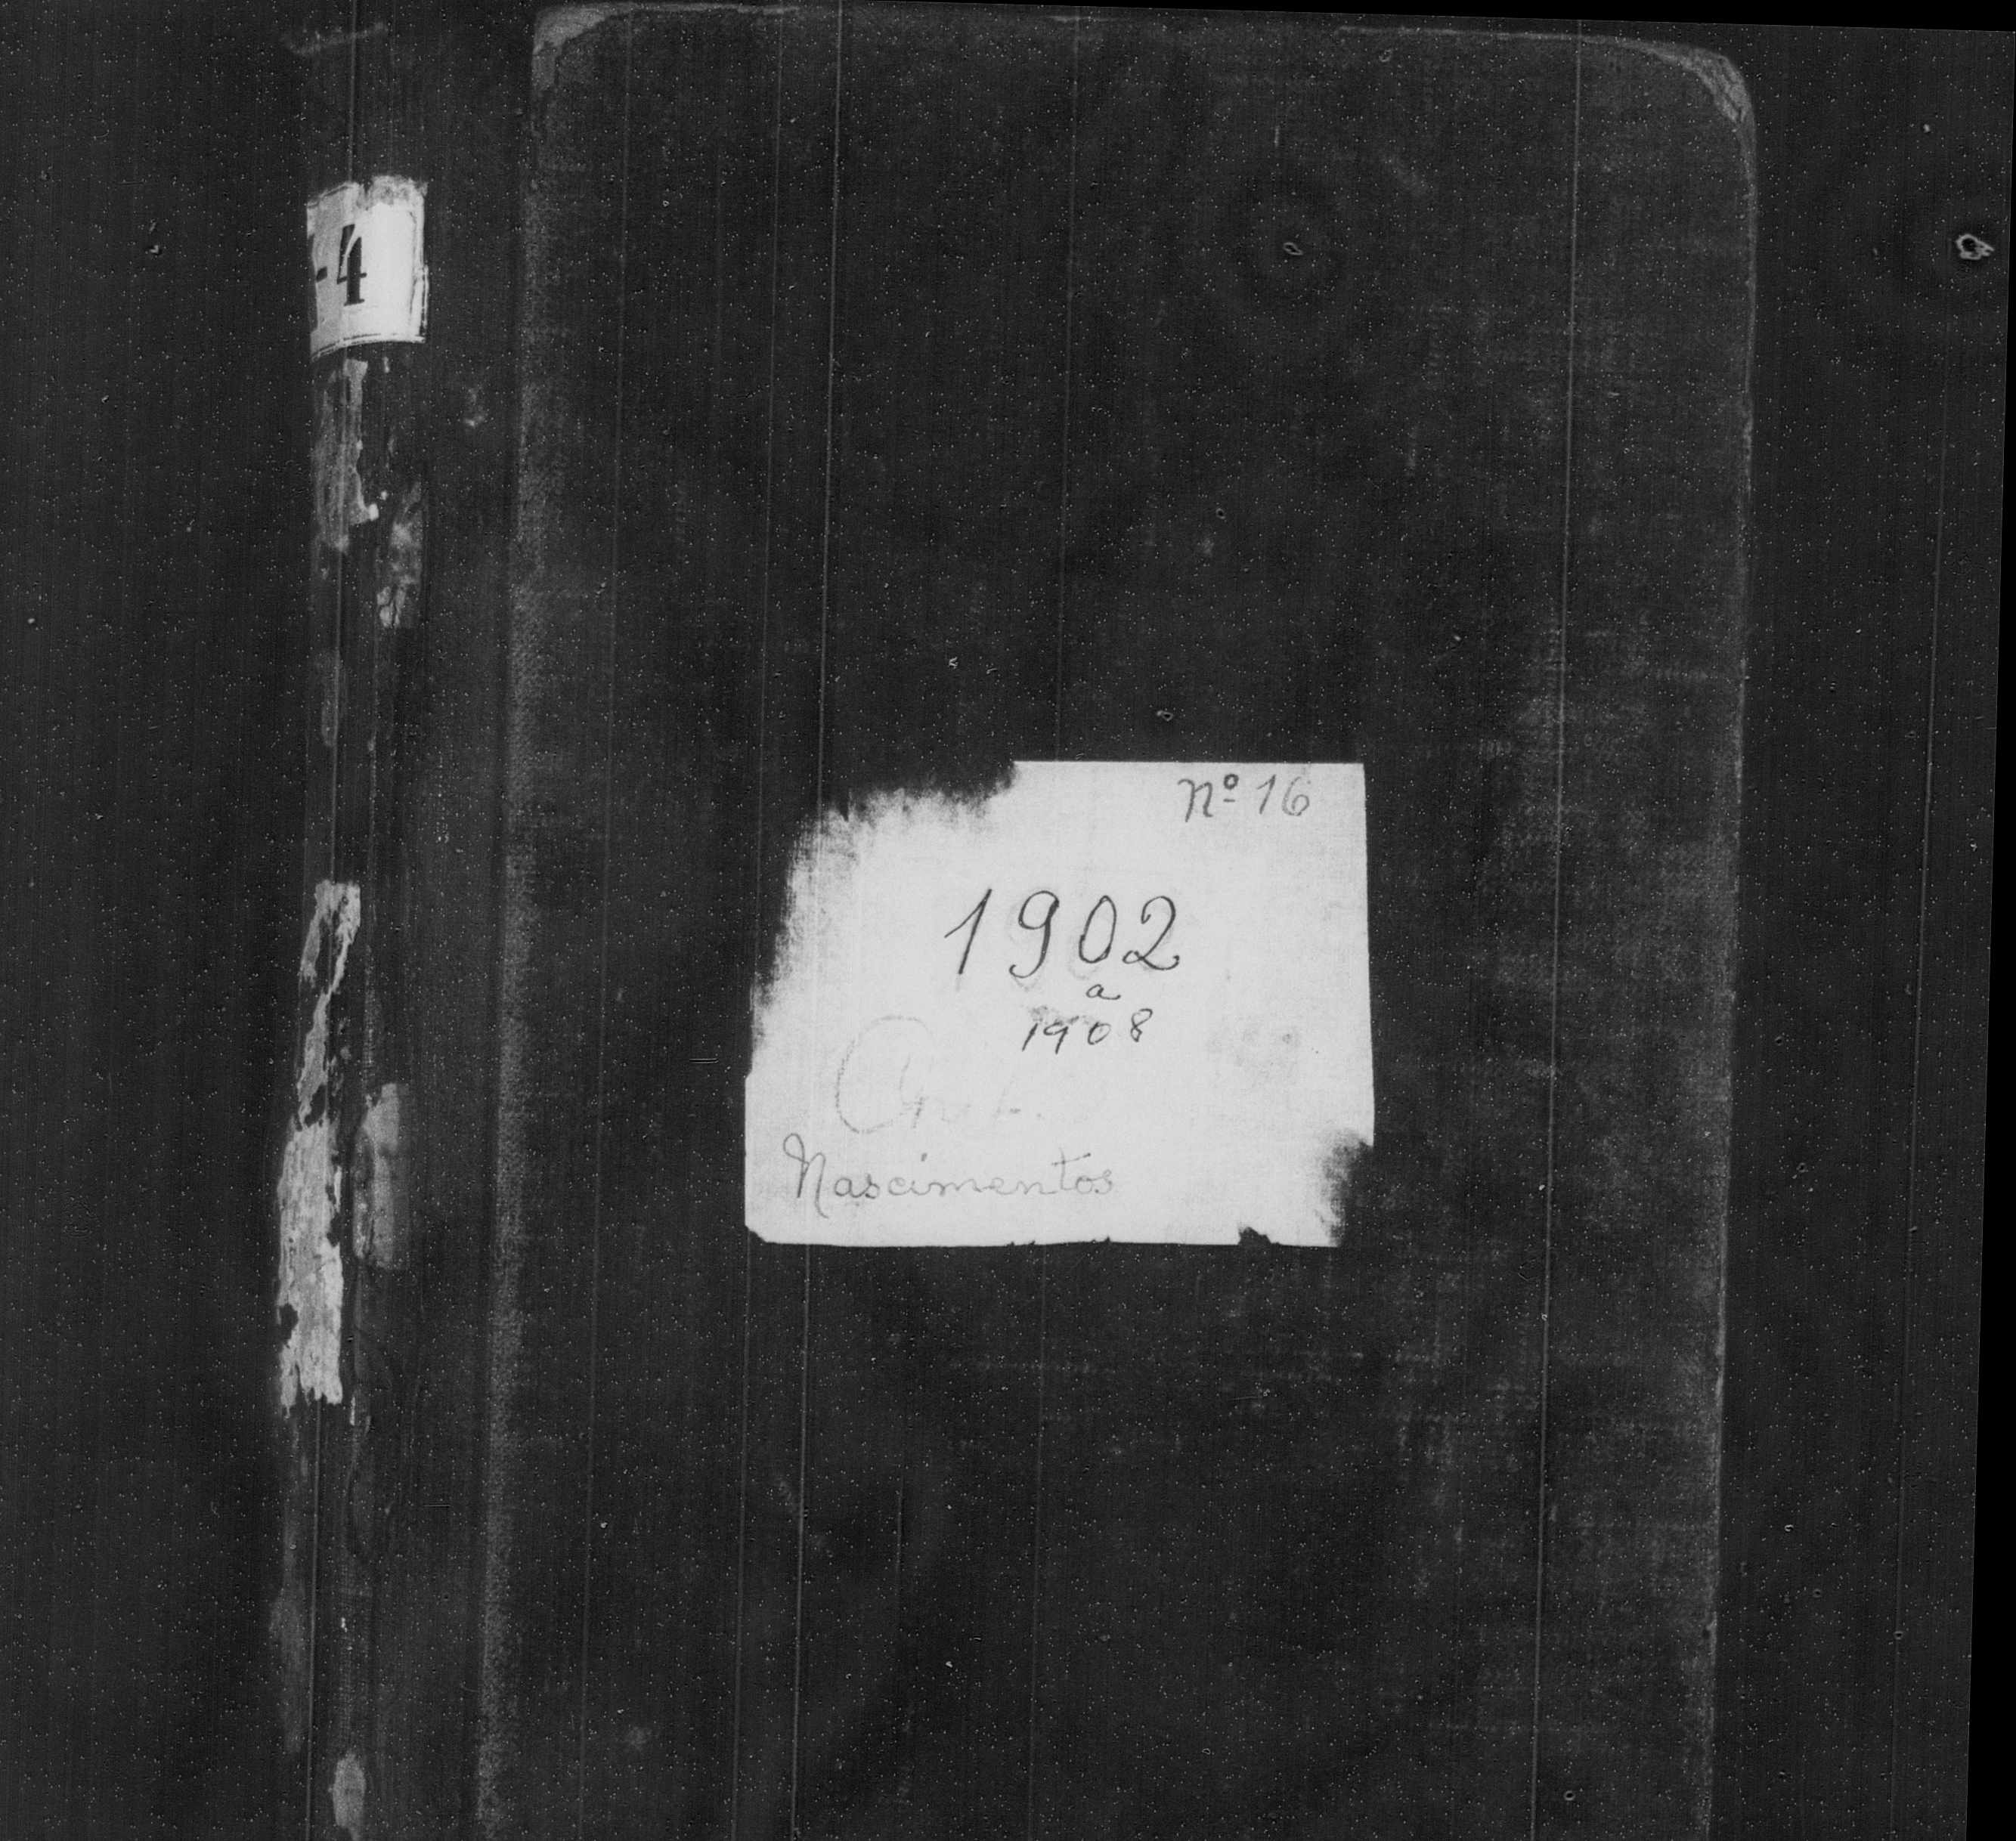 -4
Nº 16
1902
a
1908
Nascimentos